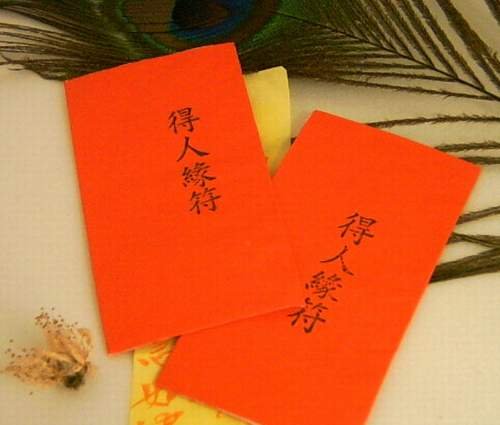 得人緣符
得人緣符